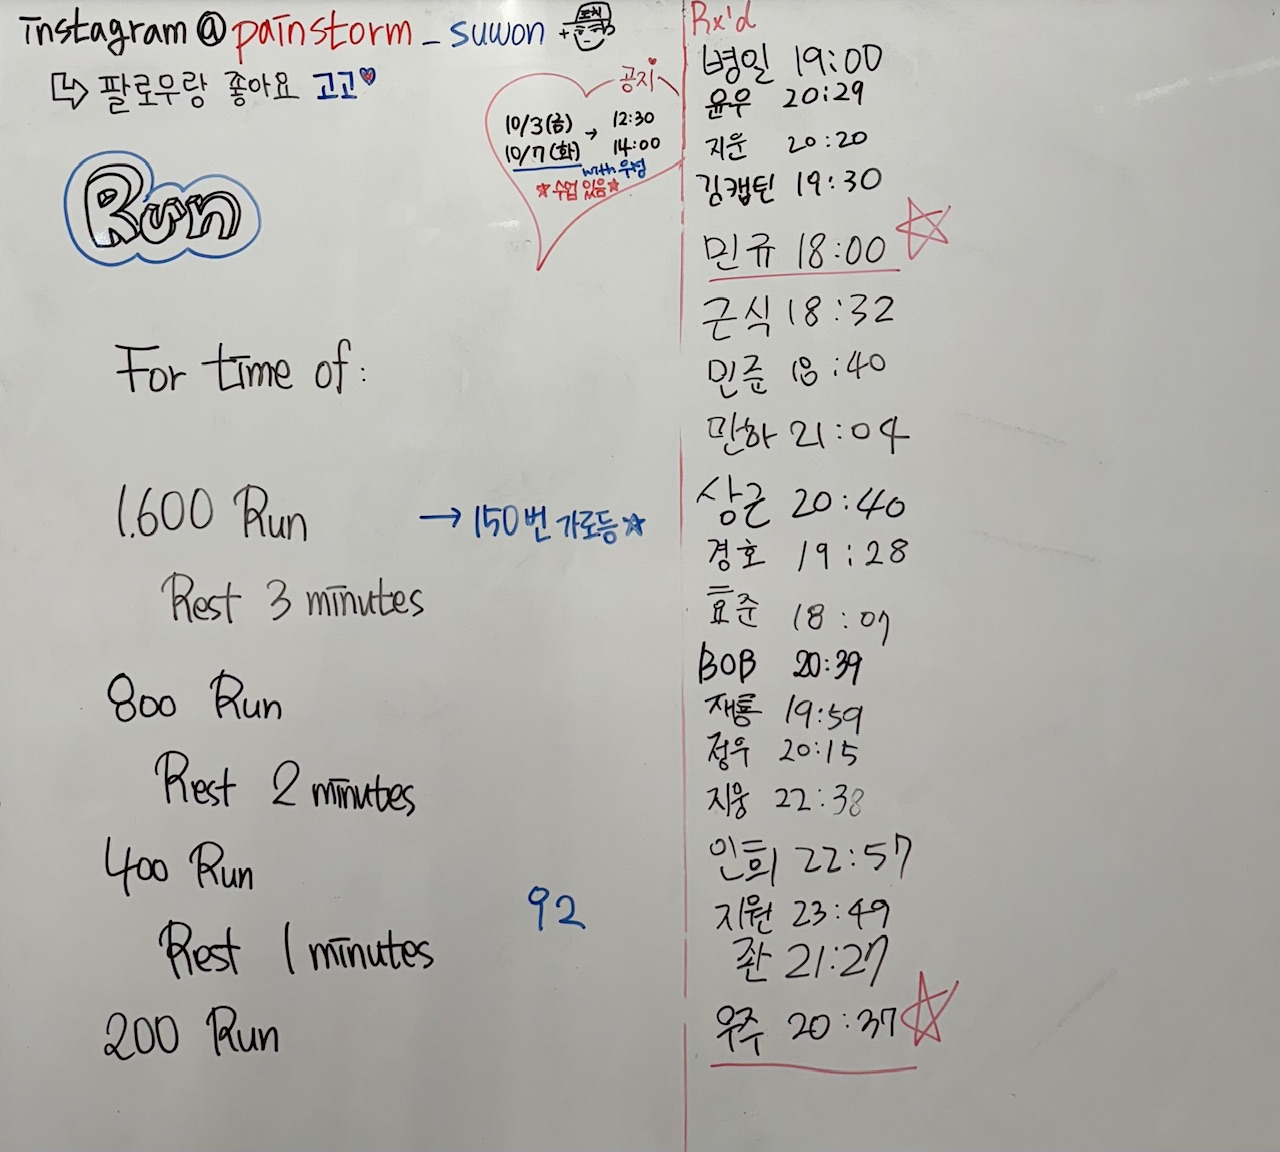 instagram@painstorm_suwon
팔로우랑 좋아요 고고
공지
10/3(금) → 12:30
10/7(화) 14:00
with 우성
☆수업 있음☆
Run
For time of:
1.600 Run → 150번 가로등☆
Rest 3 minutes
800 Run
Rest 2 minutes
400 Run
Rest 1 minutes
200 Run
92
Rx'd
병일 19:00
윤우 20:29
지운 20:20
김캡틴 19:30
민규 18:00
근식 18:32
민준 18:40
민하 21:04
상근 20:40
경호 19:28
효준 18:07
BOB 20:39
재룡 19:59
정우 20:15
지웅 22:38
인희 22:57
지원 23:49
좐 21:27
우주 20:37